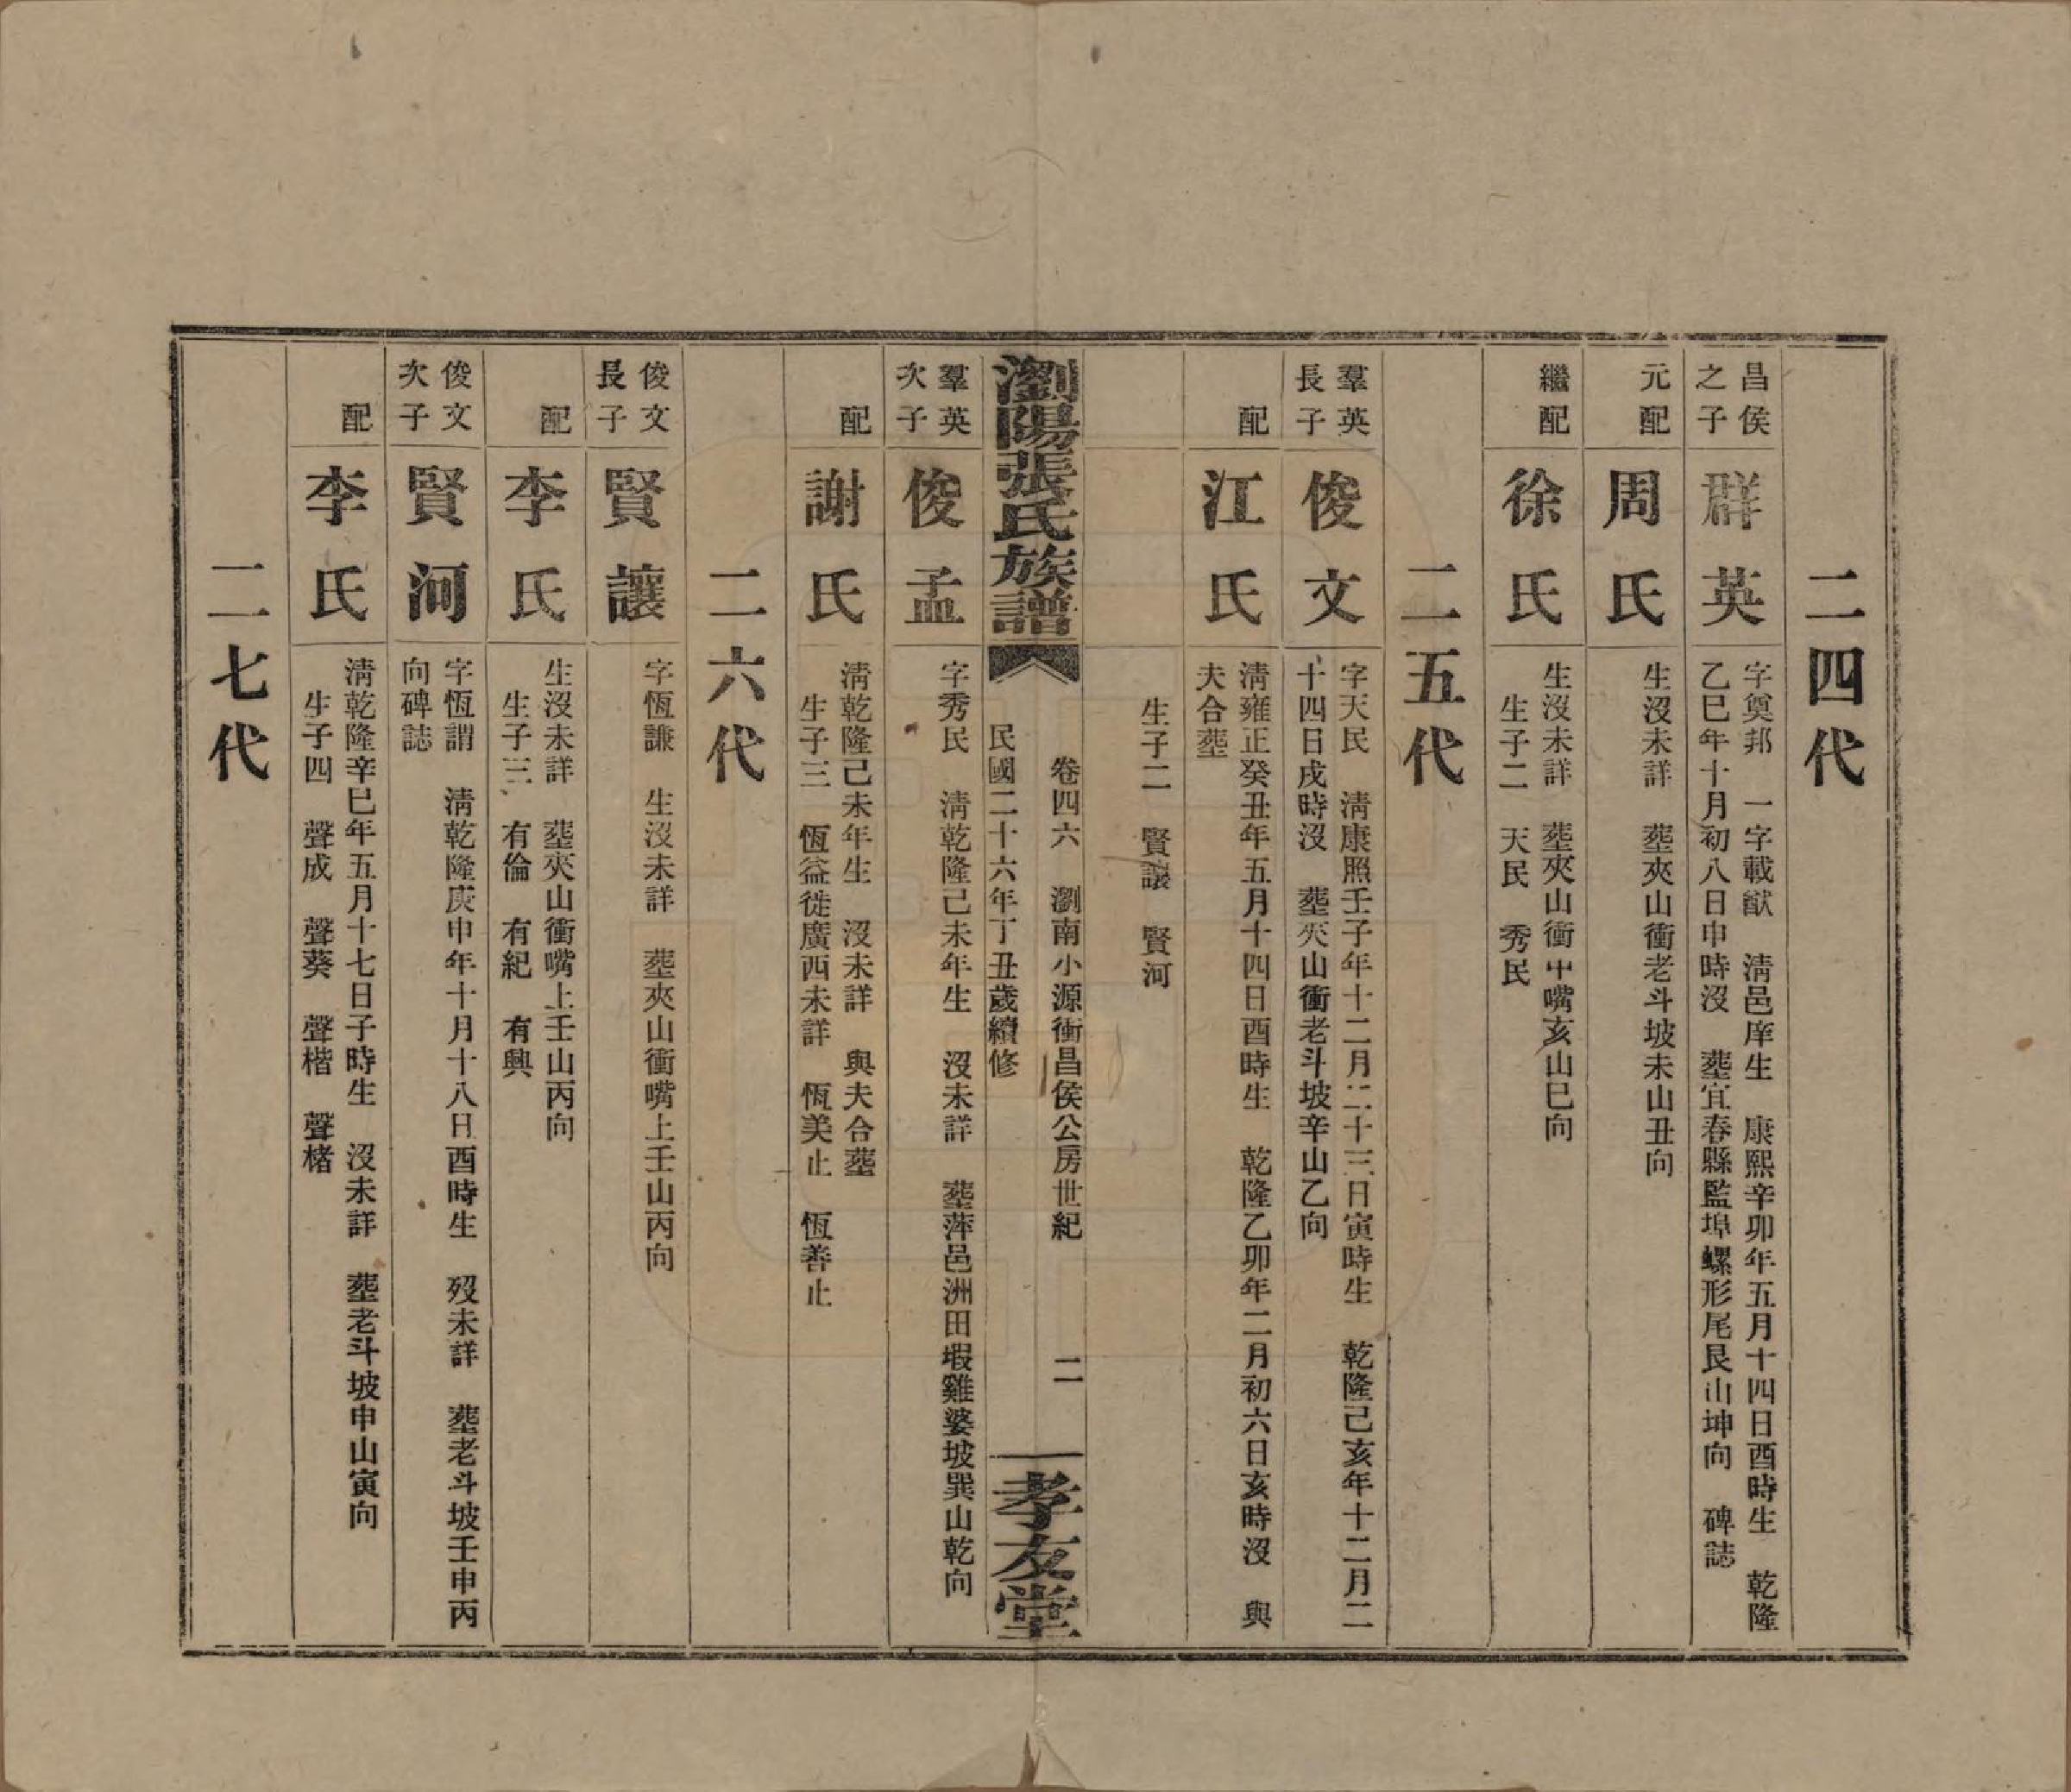 二四代
昌侯
之子
群英
字奠邦　一字載猷　淸邑庠生　康熙辛卯年五月十四日酉時生　乾隆
乙巳年十月初八日申時沒　塟宜春縣監埠螺形尾艮山坤向　碑誌
元配
周氏
生沒未詳　塟夾山衝老斗坡未山丑向
繼配
徐氏
生沒未詳　塟夾山衝中嘴亥山巳向
生子二　天民　秀民
二五代
羣英
長子
俊文
字天民　淸康照壬子年十二月二十三日寅時生　乾隆己亥年十二月二
十四日戌時沒　塟夾山衝老斗坡辛山乙向
配
江氏
淸雍正癸丑年五月十四日酉時生　乾隆乙卯年二月初六日亥時沒　與
夫合塟
生子二　賢讓　賢河
瀏陽張氏族譜
卷四六　瀏南小源衝昌侯公房世紀　二
民國二十六年丁丑歲續修
孝友堂
羣英
次子
俊孟
字秀民　淸乾隆己未年生　沒未詳　塟萍邑洲田塅雞婆坡巽山乾向
配
謝氏
淸乾隆己未年生　沒未詳　與夫合塟
生子三　恆益徙廣西未詳　恆美止　恆善止
二六代
俊文
長子
賢讓
字恆謙　生沒未詳　塟夾山衝嘴上壬山丙向
配
李氏
生沒未詳　塟夾山衝嘴上壬山丙向
生子三　有倫　有紀　有興
俊文
次子
賢河
字恆謂　淸乾隆庚申年十月十八日酉時生　歿未詳　塟老斗坡壬申丙
向碑誌
配
李氏
淸乾隆辛巳年五月十七日子時生　沒未詳　塟老斗坡申山寅向
生子四　聲成　聲葵　聲楷　聲楮
二七代